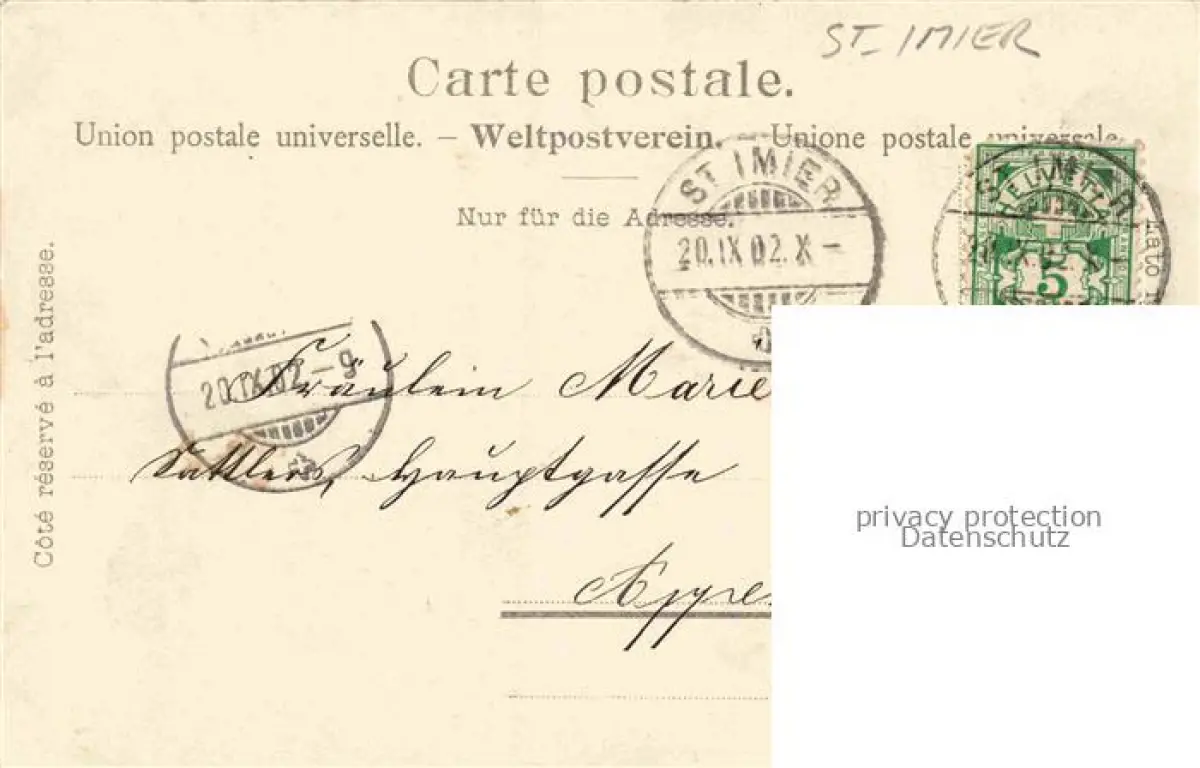 ST. IMIER
Carte postale.
Union postale universelle. — Weltpostverein. — Unione postale universale.
Nur für die Adresse.
Côté réservé à l'adresse.
ST IMIER
20.IX 02. X –
ST. IMIER
HELVETIA
5
Lato
20.IX.02 – 9
Fräulein Marie
Sattlers, Hauptgasse
Appe
privacy protection
Datenschutz